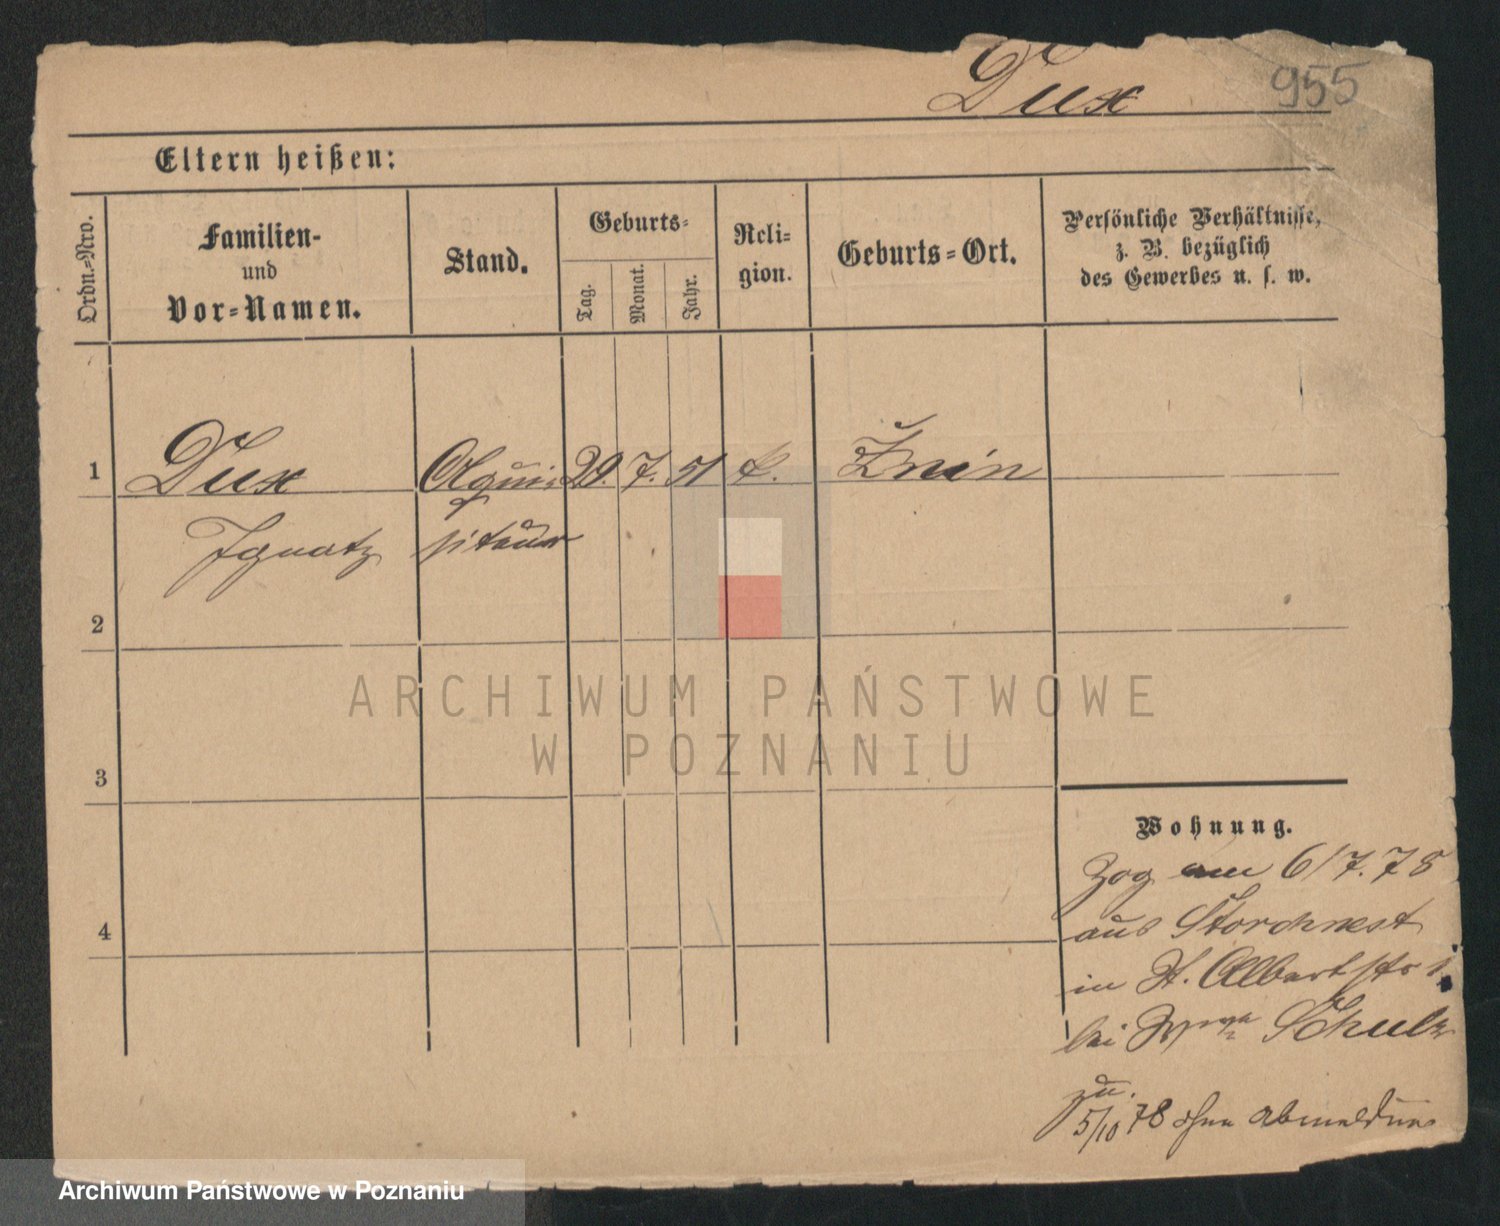 Dux 955
Eltern heißen:
Ordn.-Nro.
Familien-
und
Vor-Namen.
Stand.
Geburts-
Tag.
Monat.
Jahr.
Reli-
gion.
Geburts-Ort.
Persönliche Verhältnisse,
z. B. bezüglich
des Gewerbes u. s. w.
1 Dux Aqui- 29. 7. 51 k. Žnin
Ignatz siteur
2
3
4
Wohnung.
Zog am 6/7.78
aus Storchnest
in St. Adalbertstr 1.
bei Schulz
zu.
5/10 78 ohne Abmeldung
ARCHIWUM PAŃSTWOWE
W POZNANIU
Archiwum Państwowe w Poznaniu